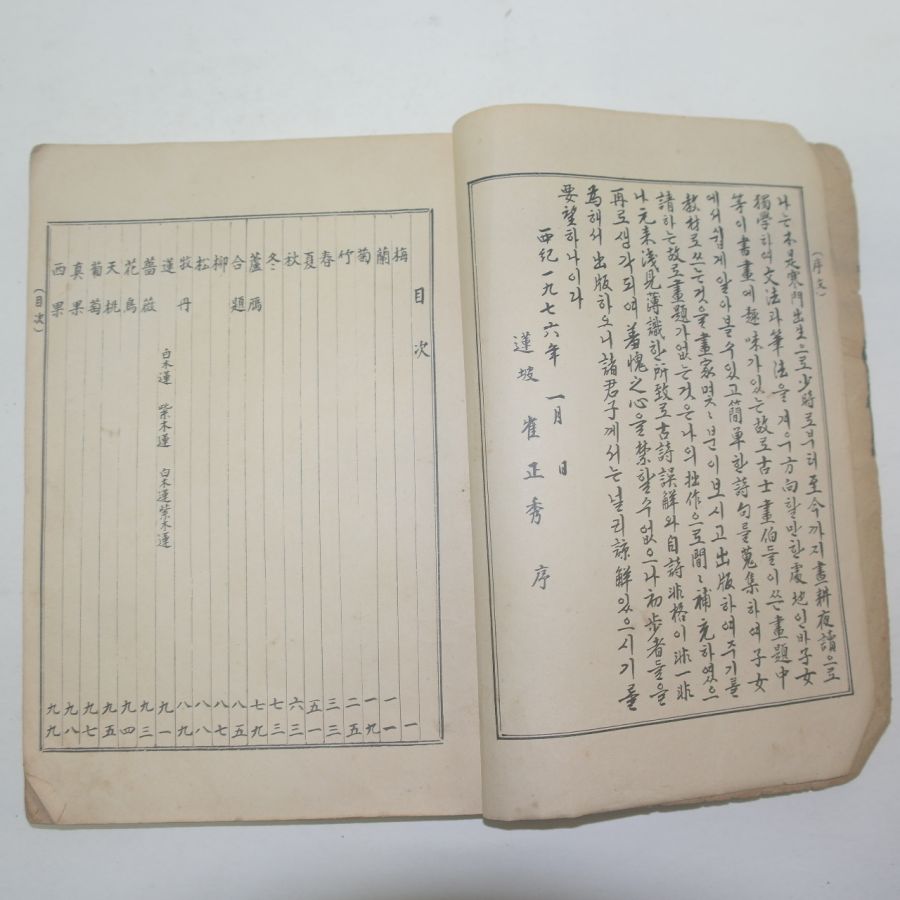 (序文)
나는 本是寒門出生으로 少時로부터 至今까지 晝耕夜讀으로
獨學하여 文法과 筆法을 겨우 方向할만한 處地인바 子女
等이 書畵에 趣味가 있는故로 古士畵伯들이 쓴 畵題中
에서 쉽게 알아볼수있고 簡單한 詩句를 蒐集하여 子女
敎材로 쓰는것을 畵家몇々분이 보시고 出版하여주기를
請하는故로 畵題가없는것은 나의 拙作으로 間々補充하였으
나 元来浅見薄識한 所致로 古詩誤解와 自詩非格이 非一非
再로 생각되여 羞愧之心을 禁할수없으나 初步者들을
爲해서 出版하오니 諸君子께서는 널리 諒解있으시기를
要望하나이다
西紀一九七六年 一月 日
蓮坡 崔正秀 序
目次
梅 一
蘭 一一
菊 一九
竹 二五
春 三三
夏 五一
秋 六三
冬 七三
蘆鴈 七九
合題 八五
柳 八七
松 八八
牧丹 八九
蓮 白木蓮 紫木蓮 白木蓮紫木蓮 九一
薔薇 九三
花鳥 九四
天桃 九五
葡萄 九七
真果 九八
西果 九九
(目次)